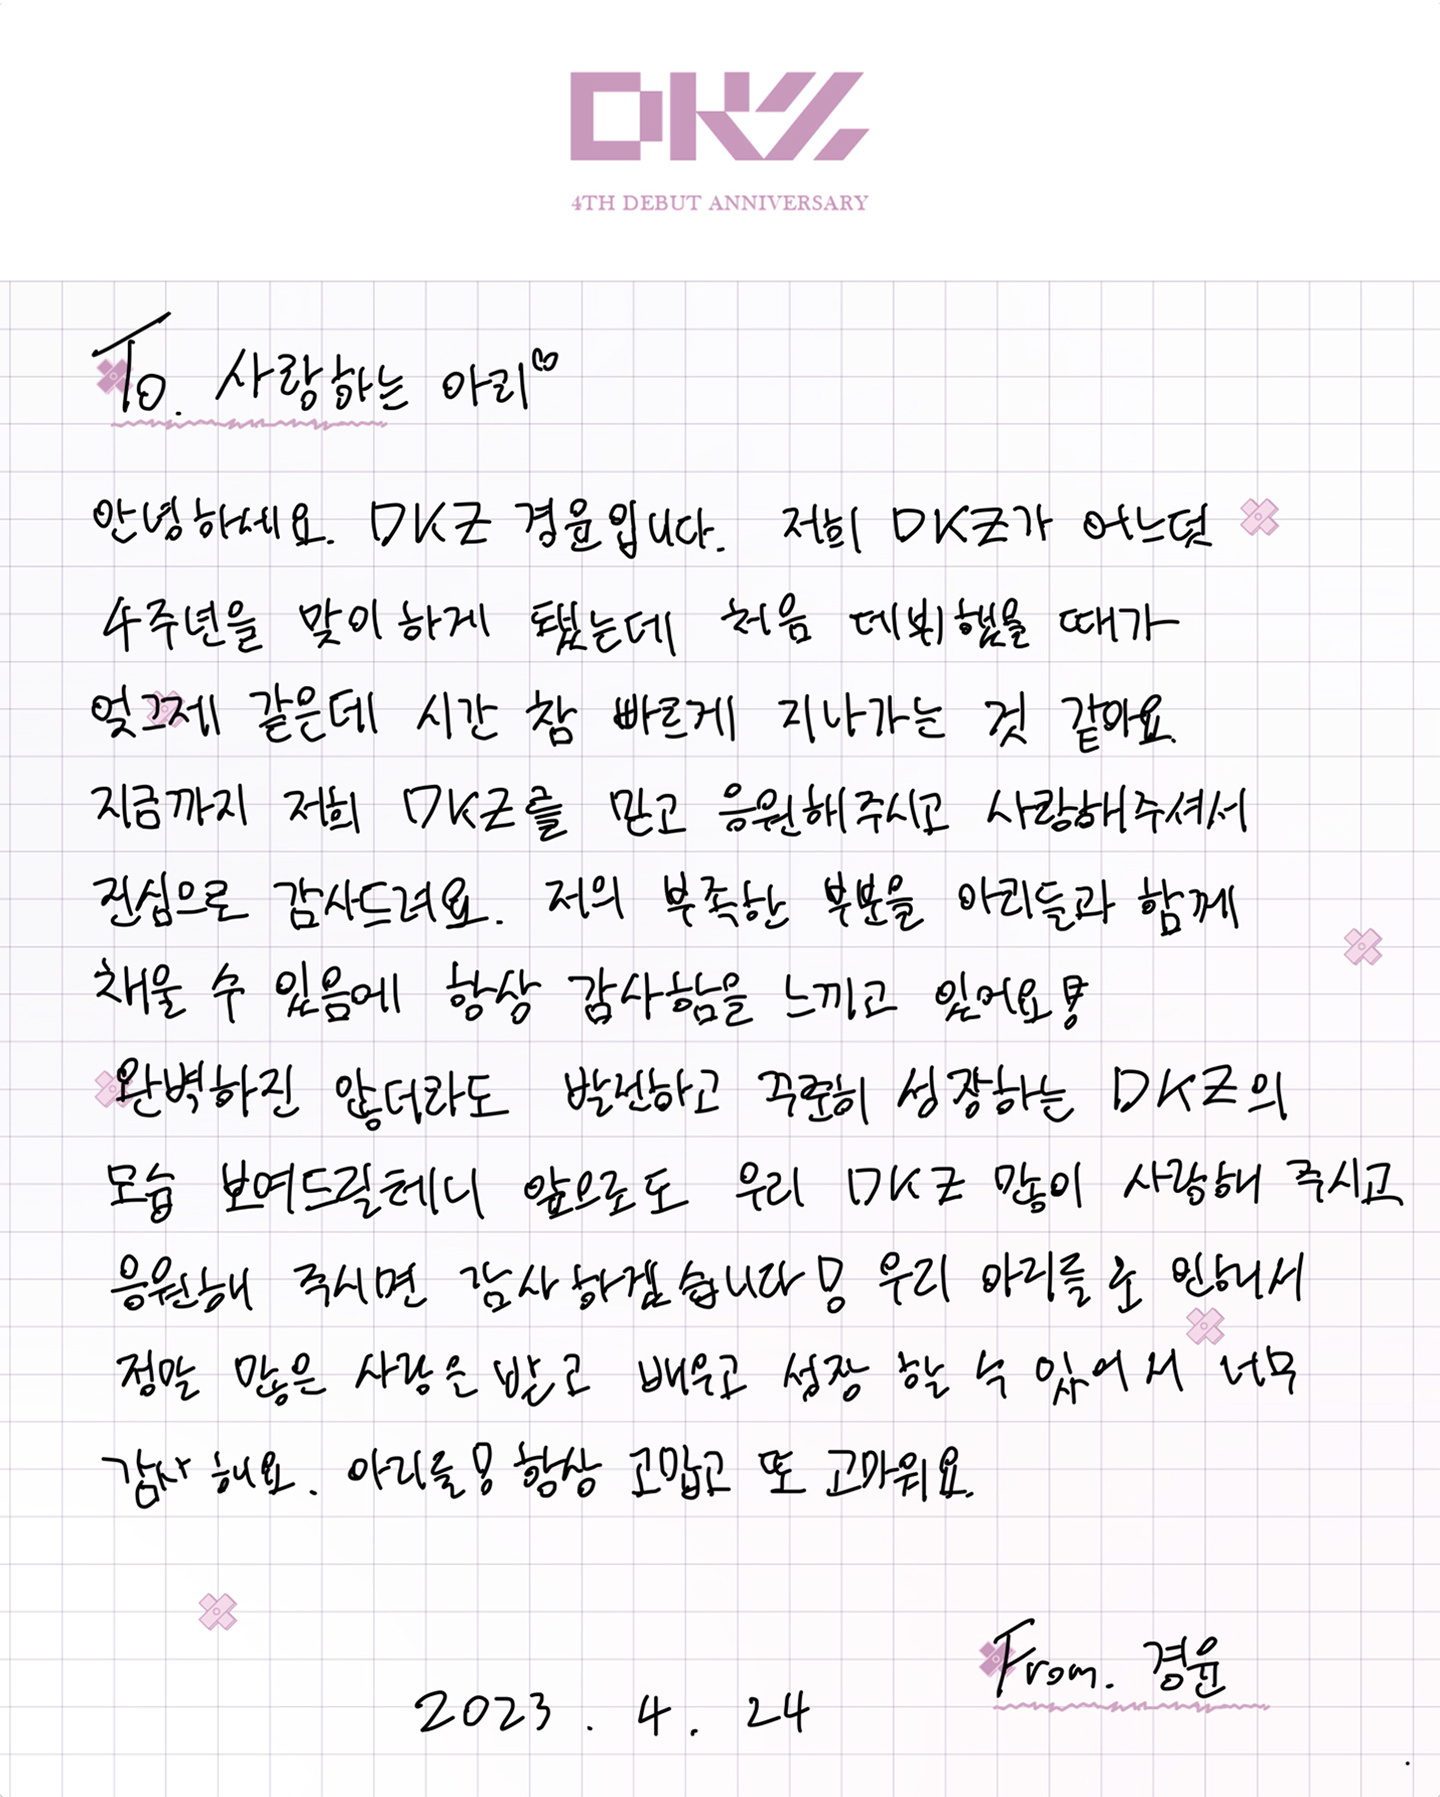 DKZ
4TH DEBUT ANNIVERSARY
To. 사랑하는 아리♡
안녕하세요. DKZ 경윤입니다. 저희 DKZ가 어느덧
4주년을 맞이하게 됐는데 처음 데뷔했을 때가
엊그제 같은데 시간 참 빠르게 지나가는 것 같아요.
지금까지 저희 DKZ를 믿고 응원해주시고 사랑해주셔서
진심으로 감사드려요. 저의 부족한 부분을 아리들과 함께
채울 수 있음에 항상 감사함을 느끼고 있어요
완벽하진 않더라도 발전하고 꾸준히 성장하는 DKZ의
모습 보여드릴테니 앞으로도 우리 DKZ 많이 사랑해 주시고
응원해 주시면 감사하겠습니다 우리 아리들로 인해서
정말 많은 사랑을 받고 배우고 성장 할 수 있어서 너무
감사해요. 아리들 항상 고맙고 또 고마워요.
From. 경윤
2023. 4. 24